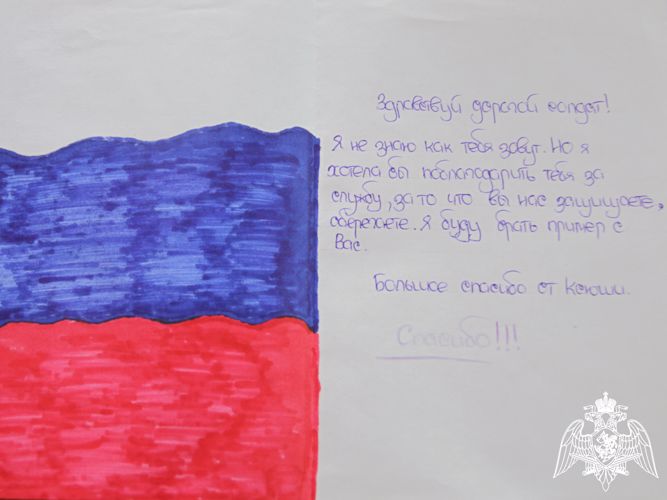 Здравствуй дорогой солдат!
Я не знаю как тебя зовут. Но я
хотела бы поблагодарить тебя за
службу, за то что вы нас защищаете,
оберегаете. Я буду брать пример с
Вас.
Большое спасибо от Ксюши.
Спасибо!!!